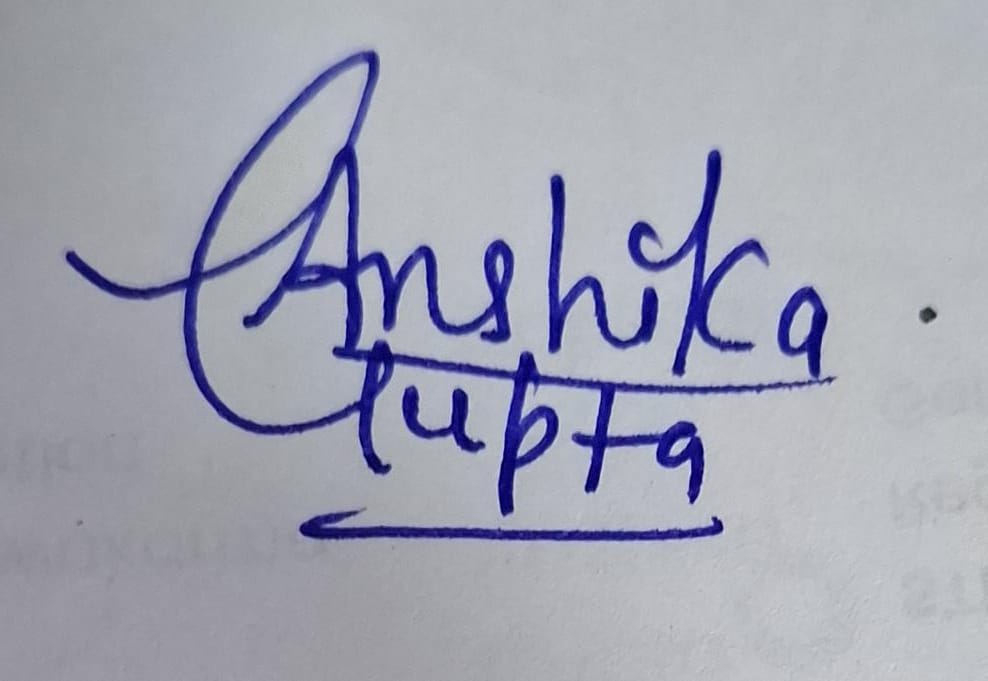 Anshika
Gupta